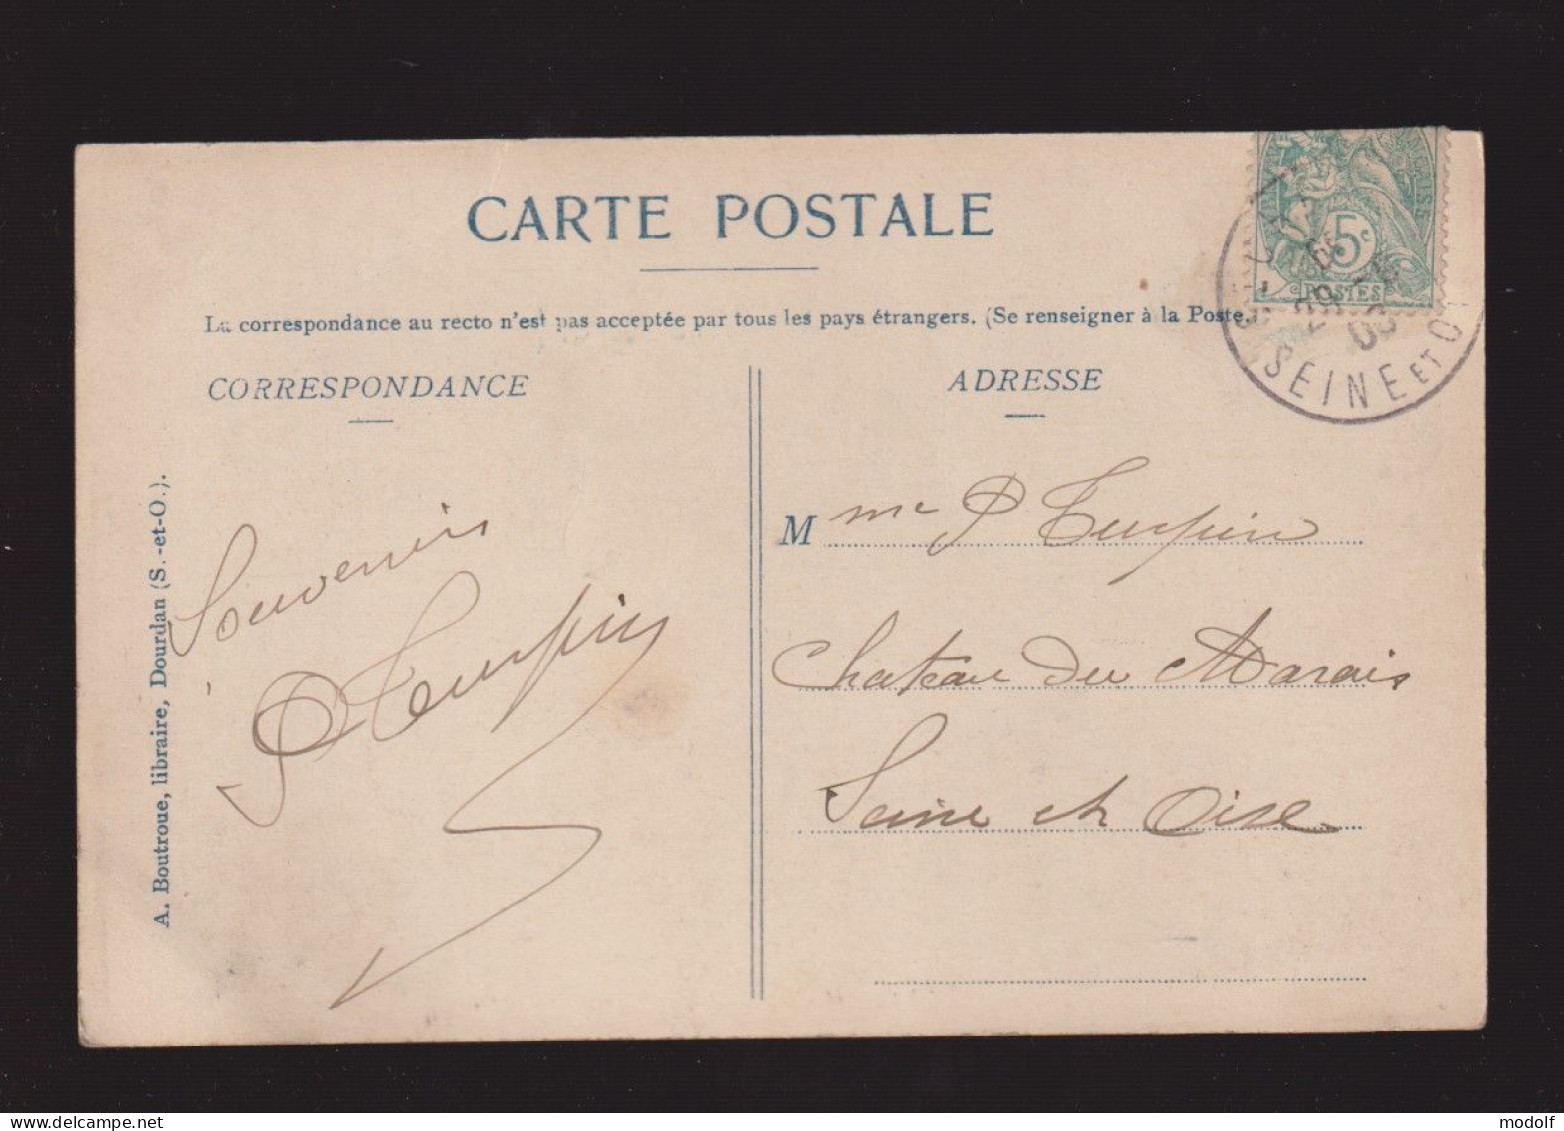 CARTE POSTALE
La correspondance au recto n'est pas acceptée par tous les pays étrangers. (Se renseigner à la Poste.)
CORRESPONDANCE
ADRESSE
5c
POSTES
SEINE ET O
A. Boutroue, libraire, Dourdan (S.-et-O.).
Souvenir
P Turpin
Mme P Turpin
Chateau du Marais
Seine et Oise
modolf